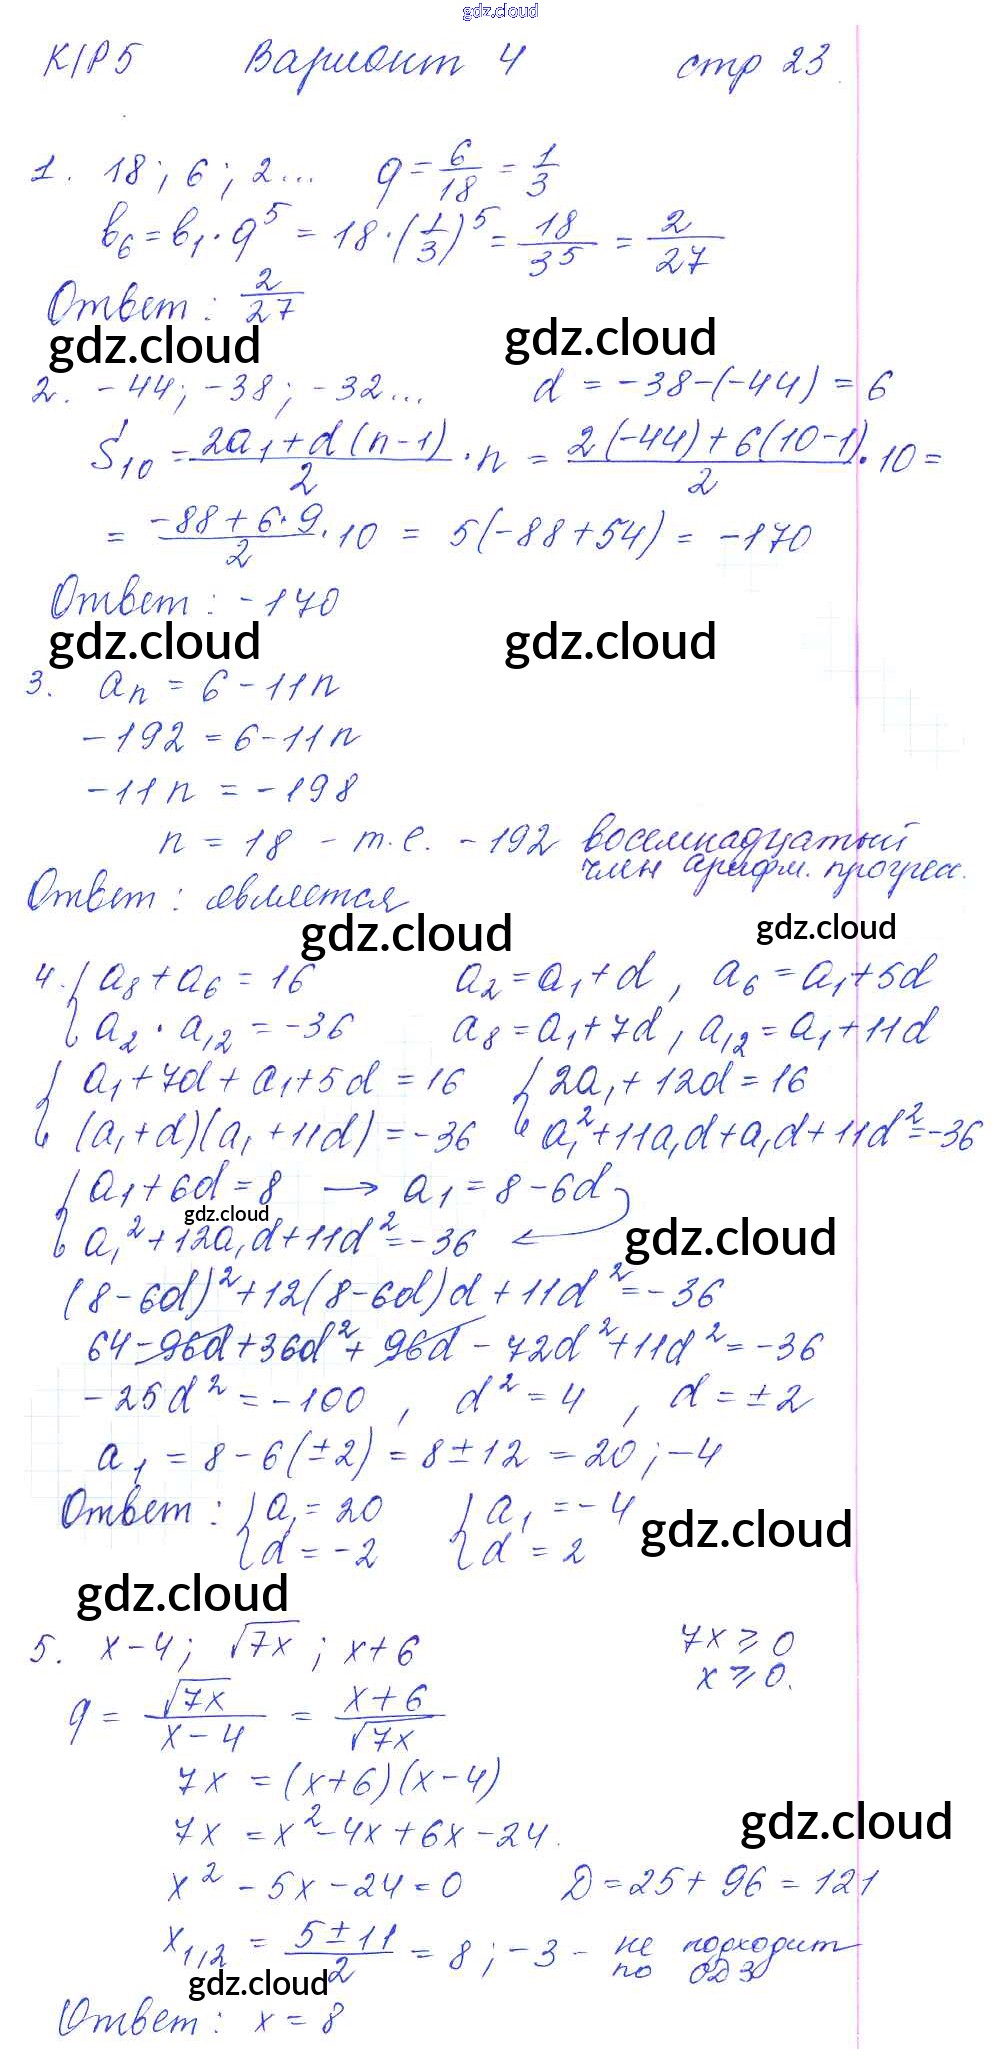 gdz.cloud
К/Р 5 Вариант 4 стр 23
1. 18; 6; 2... q = 6/18 = 1/3
b₆ = b₁·q⁵ = 18·(1/3)⁵ = 18/3⁵ = 2/27
Ответ: 2/27
gdz.cloud gdz.cloud
2. -44; -38; -32... d = -38-(-44) = 6
S₁₀ = (2a₁+d(n-1))/2 · n = (2(-44)+6(10-1))/2 · 10 =
= (-88+6·9)/2 · 10 = 5(-88+54) = -170
Ответ: -170
gdz.cloud gdz.cloud
3. aₙ = 6-11n
-192 = 6-11n
-11n = -198
n = 18 - т.е. -192 восемнадцатый
член арифм. прогресс.
Ответ: является
gdz.cloud gdz.cloud
4. { a₈+a₆ = 16 a₂ = a₁+d, a₆ = a₁+5d
a₂·a₁₂ = -36 a₈ = a₁+7d, a₁₂ = a₁+11d
{ a₁+7d+a₁+5d = 16 { 2a₁+12d = 16
(a₁+d)(a₁+11d) = -36 a₁²+11a₁d+a₁d+11d² = -36
{ a₁+6d = 8 → a₁ = 8-6d
gdz.cloud
a₁²+12a₁d+11d² = -36 ←
gdz.cloud
(8-6d)²+12(8-6d)d+11d² = -36
64-96d+36d²+96d-72d²+11d² = -36
-25d² = -100, d² = 4, d = ±2
a₁ = 8-6(±2) = 8±12 = 20; -4
Ответ: { a₁ = 20 { a₁ = -4
d = -2 d = 2
gdz.cloud
gdz.cloud
5. x-4; √7x; x+6 7x ≥ 0
x ≥ 0.
q = √7x/(x-4) = (x+6)/√7x
7x = (x+6)(x-4)
gdz.cloud
7x = x²-4x+6x-24.
x²-5x-24 = 0 D = 25+96 = 121
x₁,₂ = (5±11)/2 = 8; -3 - не подходит
по ОДЗ
gdz.cloud
Ответ: x = 8